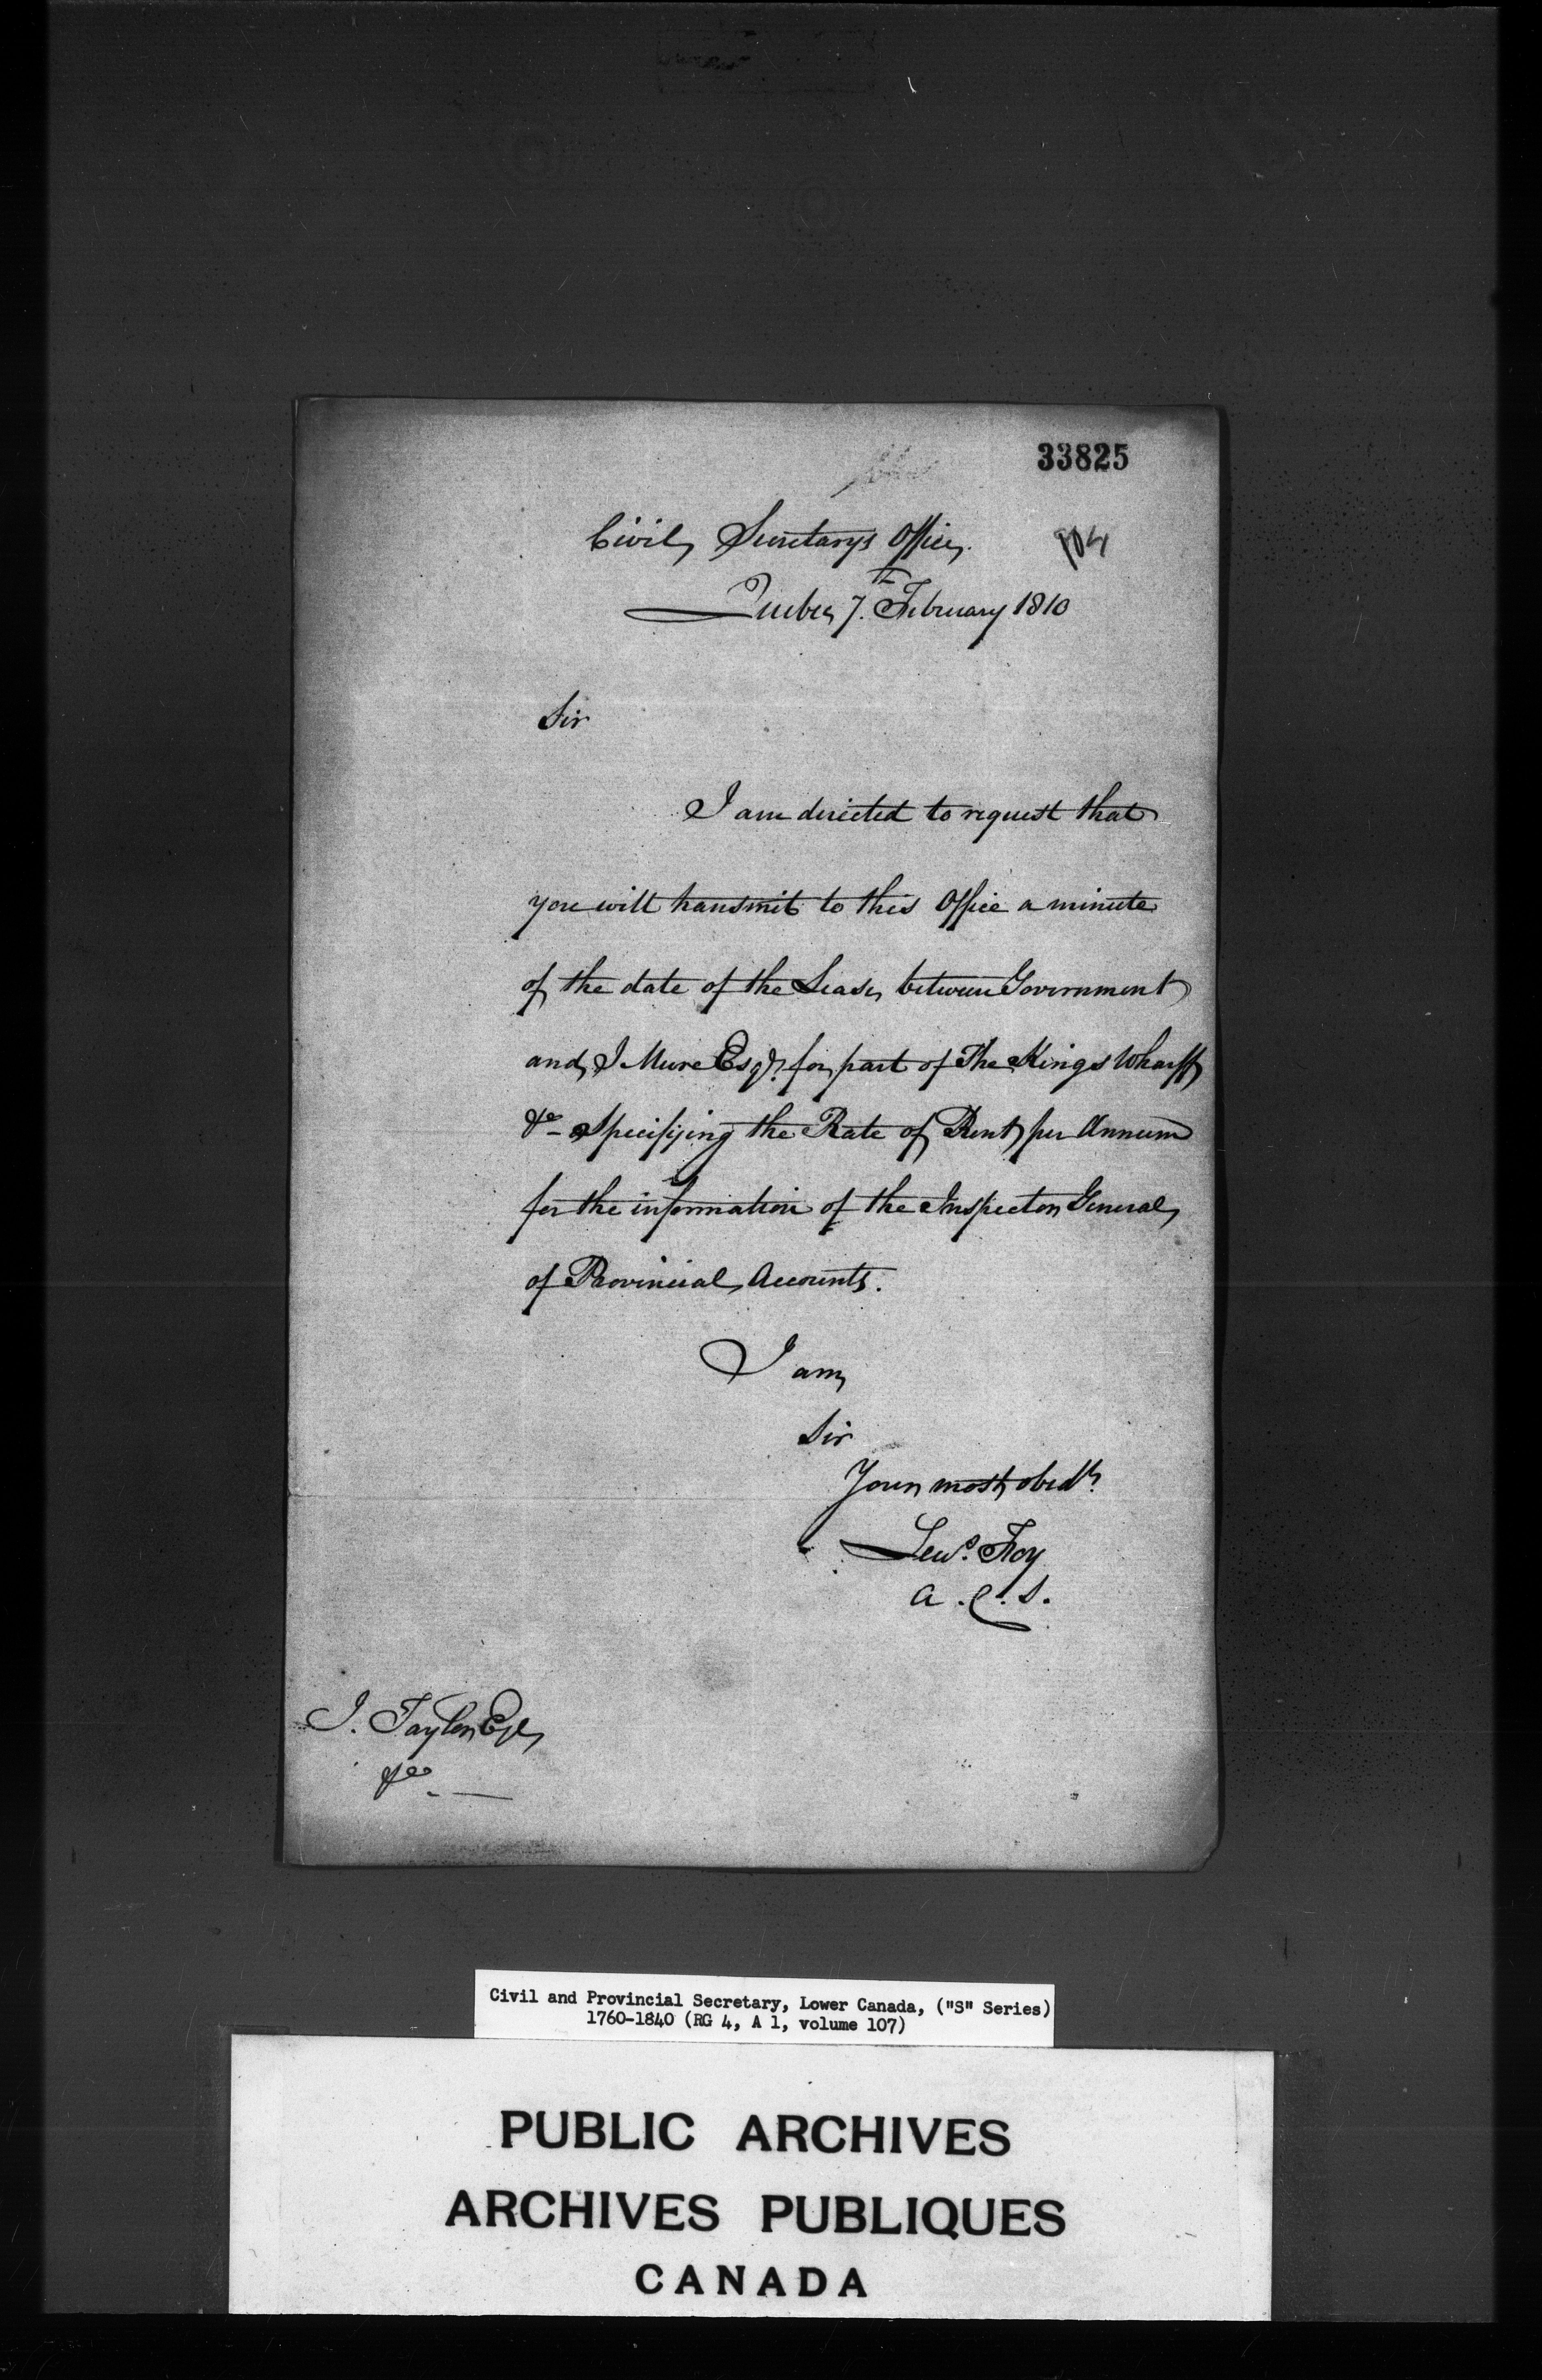 33825
Civil Secretarys Office
Quebec 7th February 1810
Sir
I am directed to request that
you will transmit to this Office a minute
of the date of the Lease between Government
and J Mure Esqr. for part of The Kings Wharff
&c - Specifying the Rate of Rent per Annum
for the information of the Inspector General
of Provincial Accounts.
I am
Sir
Your most obedt.
Lews. Foy
A. C. S.
J. Taylor Esqr
&c. —
Civil and Provincial Secretary, Lower Canada, ("S" Series)
1760-1840 (RG 4, A 1, volume 107)
PUBLIC ARCHIVES
ARCHIVES PUBLIQUES
CANADA